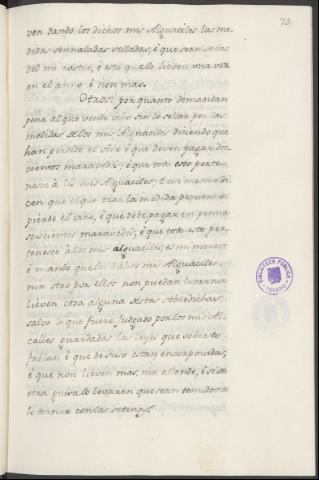 73
ven dando los dichos mis Alguaciles las me-
didas sennaladas selladas, é que sean selas
del mi rastro, é esto que lo lieven una vez
en el anno é non mas.
Otrosi por quanto demandan
pena al que vende vino sin lo sellar por las
medidas de los mis Alguaciles diciendo que
han perdido el vino é que deven pagar dos-
cientos maravedis; é que todo esto perte-
nesce á los mis Alguaciles; é asimesmo di-
cen que el que trae la medida pequenna
pierde el vino, é que debe pagar en penna
seiscientos maravedis; é que todo esto per-
tenesce á los mis alguaciles; es mi merced
é mando que los dichos mis Alguaciles
nin otro por ellos non puedan levar nin
lieven cosa alguna de esto sobredicho,
salvo lo que fuere judgado por los mis Al-
calles guardadas las leyes que sobresto
fablan é que de suso estan encorporadas,
é que non lieven mas, nin allende, é si de
otra guisa lo levaren que sean tenudos de
lo tornar con las setenas.
BIBLIOTECA PUBLICA
TOLEDO